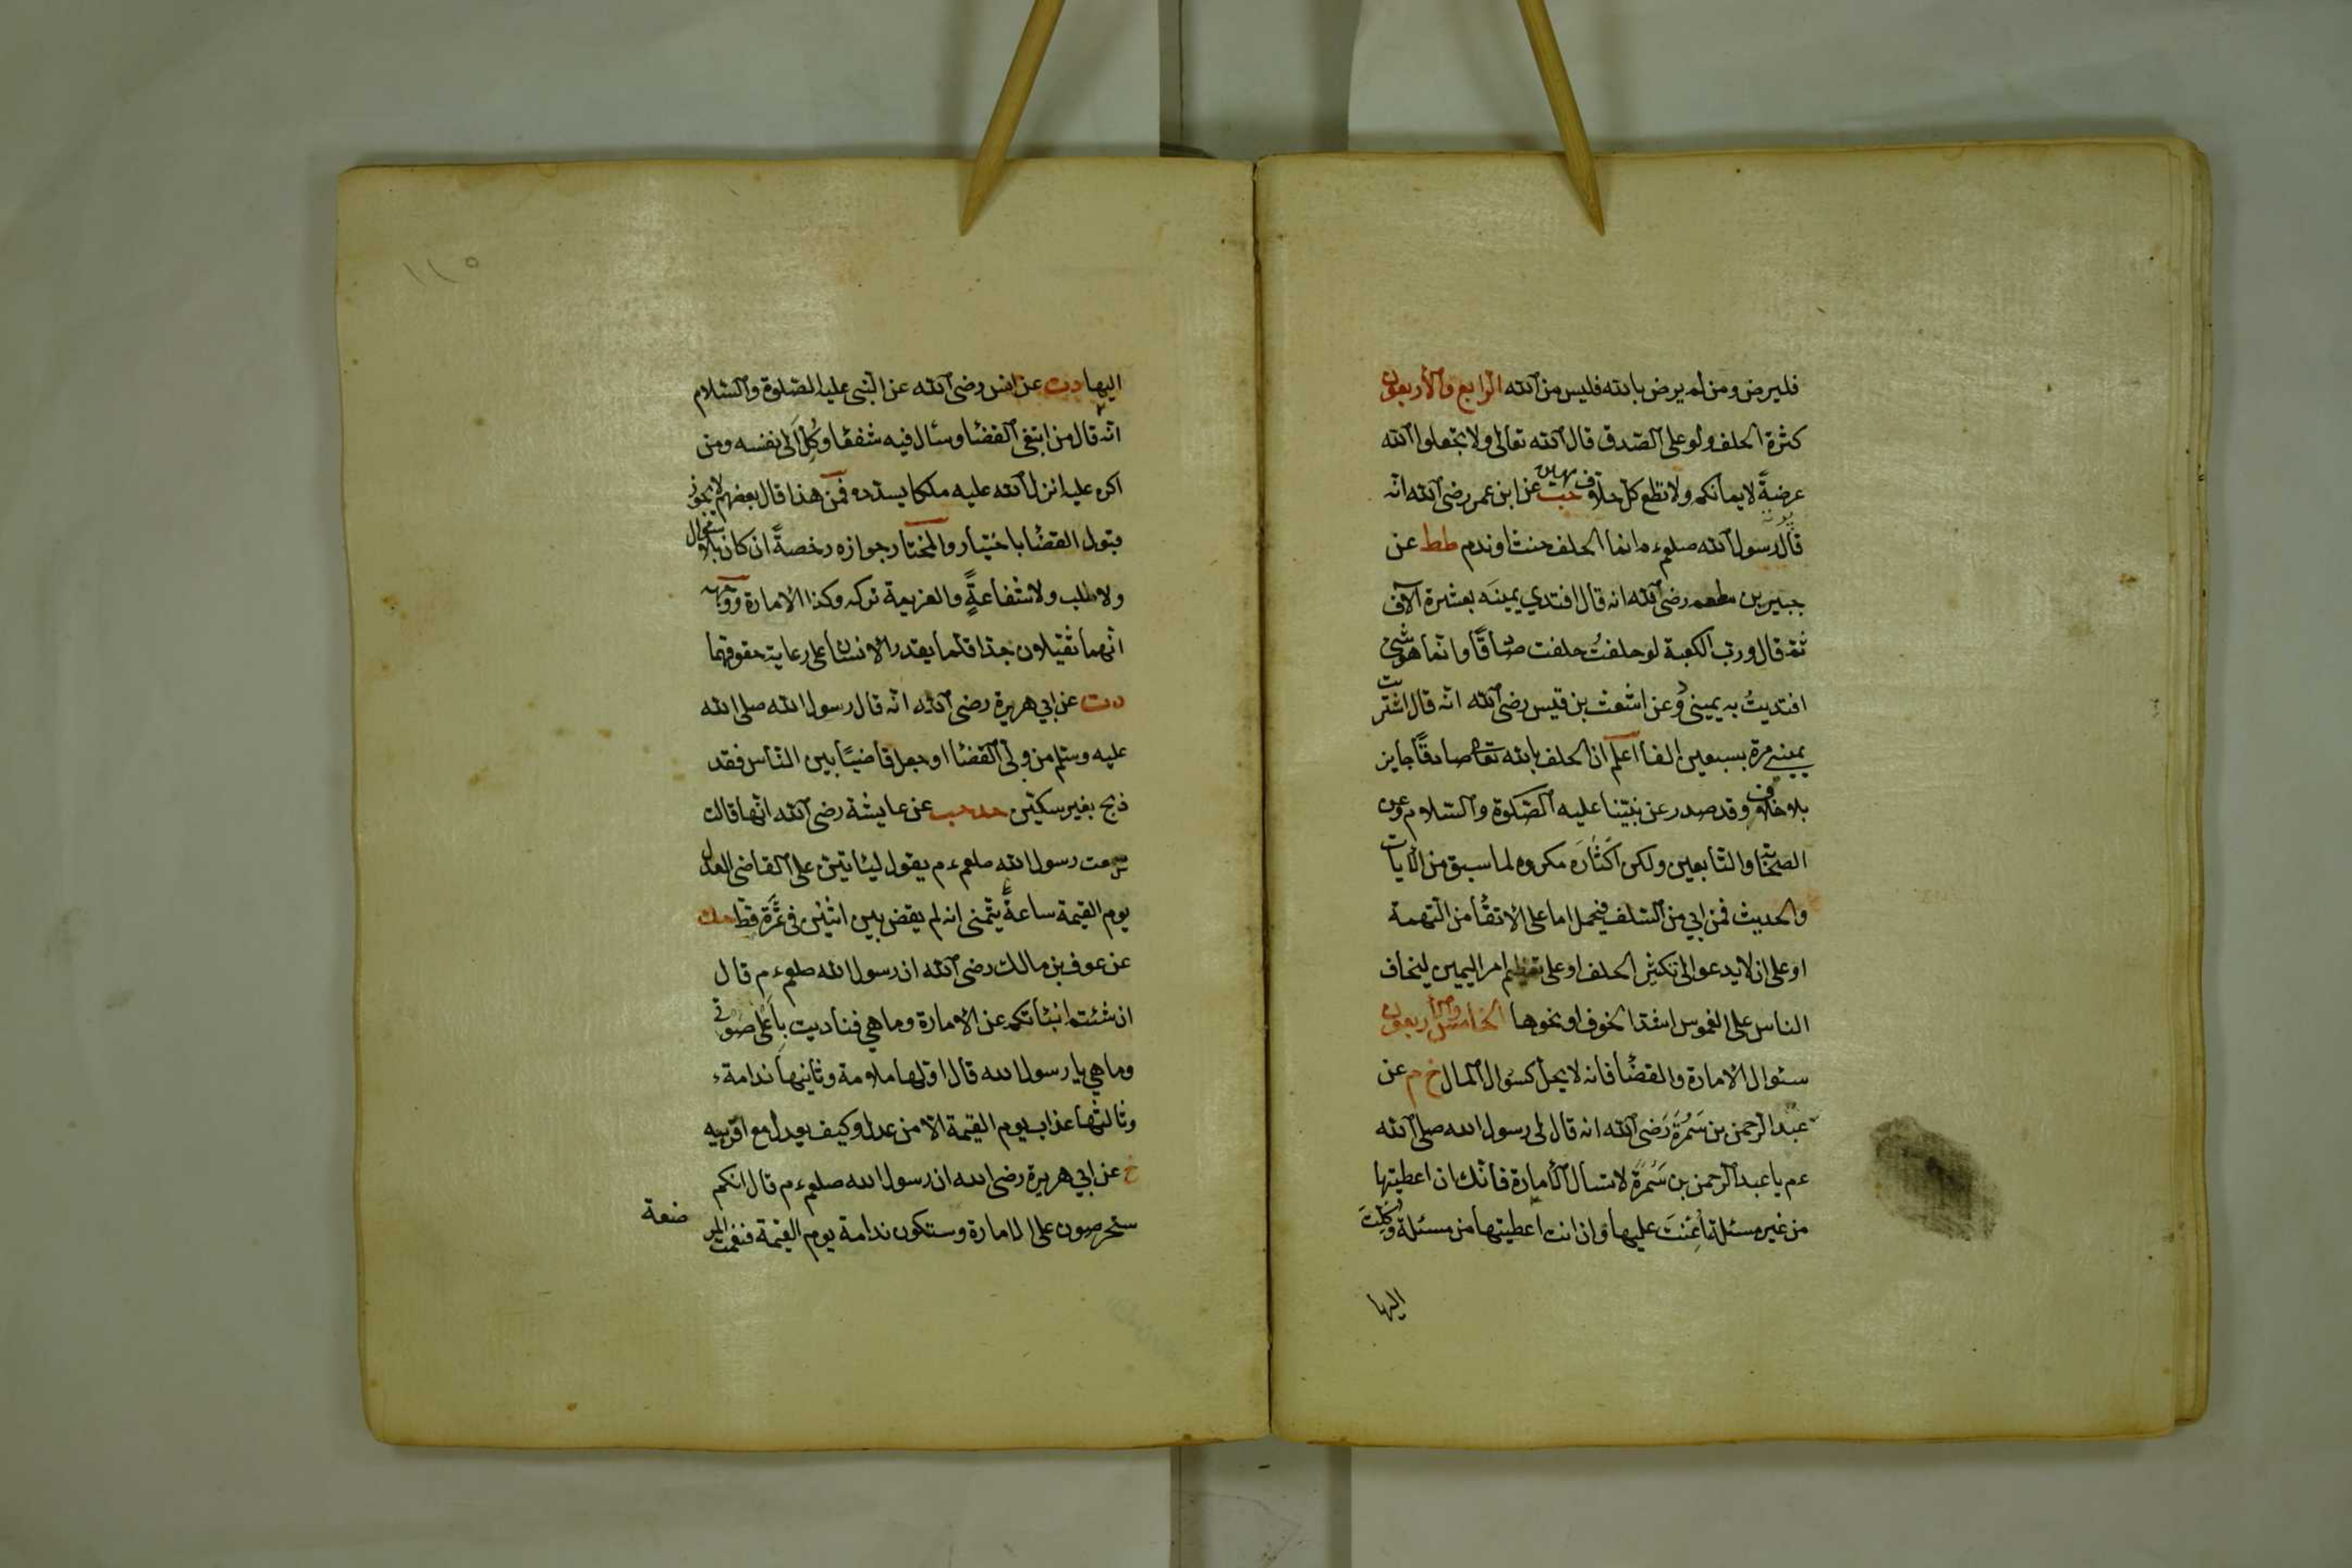 فليرض ومن لم يرض بالله فليس من الله الرابع والاربعون
كثرة الحلف ولو على الصدق قال الله تعالى ولا تجعلوا الله
عرضةً لايمانكم ولا تطع كل حلاف مهين حب عن ابن عمر رضى الله انه
قال رسول الله صلعم انما الحلف حنث او ندم طط عن
جبير بن مطعم رضى الله انه قال افتدي يمينَه بعشرة آلاف
ثم قال ورب الكعبة لو حلفتُ حلفت صادقًا وانما هو شئ
افتديتُ به يمينى وعن اشعث بن قيس رضى الله انه قال اشتريت
يمينى مرة بسبعين الفا اعلم ان الحلف بالله تعا صادقًا جايز
بلا خلاف وقد صدر عن نبينا عليه الصلوة والسلام وعن
الصحابة والتابعين ولكن اكثاره مكروه لما سبق من الآيات
والحديث فمن ابي من السلف فيحمل اما على الاتقا من التهمة
او على ان لا يدعو الى تكثير الحلف او على تعظيم امر اليمين ليخاف
الناس على الغموس اشد الخوف او نحوها الخامس والاربعون
سئوال الامارة والقضا فانه لا يحل كسؤال المال خ م عن
عبد الرحمن بن سَمُرَة رَضى الله انه قال لى رسول الله صلى الله
عم يا عبد الرحمن بن سَمُرَة لا تسأل الامارة فانك ان اعطيتها
من غير مسئلة اُعِنتَ عليها وان انت اعطيتها من مسئلة وُكِلتَ
اليها
١١٥
اليها دت عن انس رضى الله عن النبى عليه الصلوة والسلام
انه قال من ابتغى القضا وسأل فيه شفعا وُكِلَ الى نفسه ومن
اكره عليه انزل الله عليه ملكا يسدده فمن هذا قال بعضهم لا يجوز
قبول القضا باختيار والمختار جوازه رخصةً ان كان بلا سؤال
ولا طلب ولا شفاعةٍ والعزيمة تركه وكذا الامارة ووجهه
انهما ثقيلان جدا قلما يقدر الانسان على رعاية حقوقهما
دت عن ابي هريرة رضى الله انه قال رسول الله صلى الله
عليه وسلم من ولى القضا او جعل قاضيًا بين الناس فقد
ذبح بغير سكين حد حب عن عايشة رضى الله انها قالت
سمعت رسول الله صلعم يقول ليأتين على القاضى العدل
يوم القيمة ساعةٌ يتمنى انه لم يقض بين اثنين فى تمرة قط
عن عوف بن مالك رضى الله ان رسول الله صلعم قال
ان شئتم انبئاتكم عن الامارة وما هي فناديت باعلى صوتى
وما هي يا رسول الله قال اولها ملامة وثانيها ندامة
وثالثها عذاب يوم القيمة الا من عدل وكيف يعدل مع اقربيه
خ عن ابي هريرة رضى الله ان رسول الله صلعم قال انكم
ستحرصون على الامارة وستكون ندامة يوم القيمة فنعمت المر
ضعة